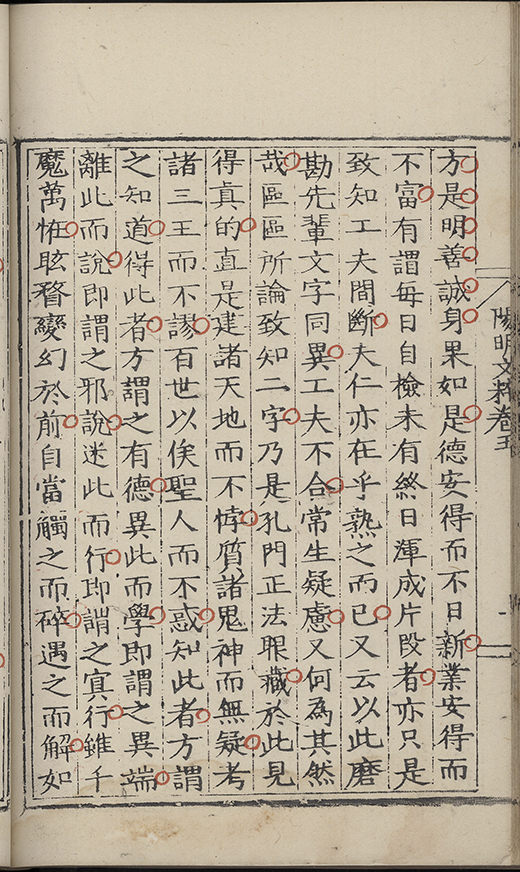 陽明文粹卷五
一
方是明善誠身果如是德安得而不日新業安得而
不富有謂每日自檢未有終日渾成片段者亦只是
致知工夫間斷夫仁亦在乎熟之而已又云以此磨
勘先輩文字同異工夫不合常生疑慮又何為其然
哉區區所論致知二字乃是孔門正法眼藏於此見
得真的直是建諸天地而不悖質諸鬼神而無疑考
諸三王而不謬百世以俟聖人而不惑知此者方謂
之知道得此者方謂之有德異此而學即謂之異端
離此而說即謂之邪說迷此而行即謂之冥行雖千
魔萬恠眩瞀變幻於前自當觸之而碎遇之而解如